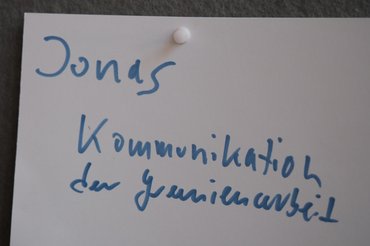 Jonas
Kommunikation
der Gremienarbeit